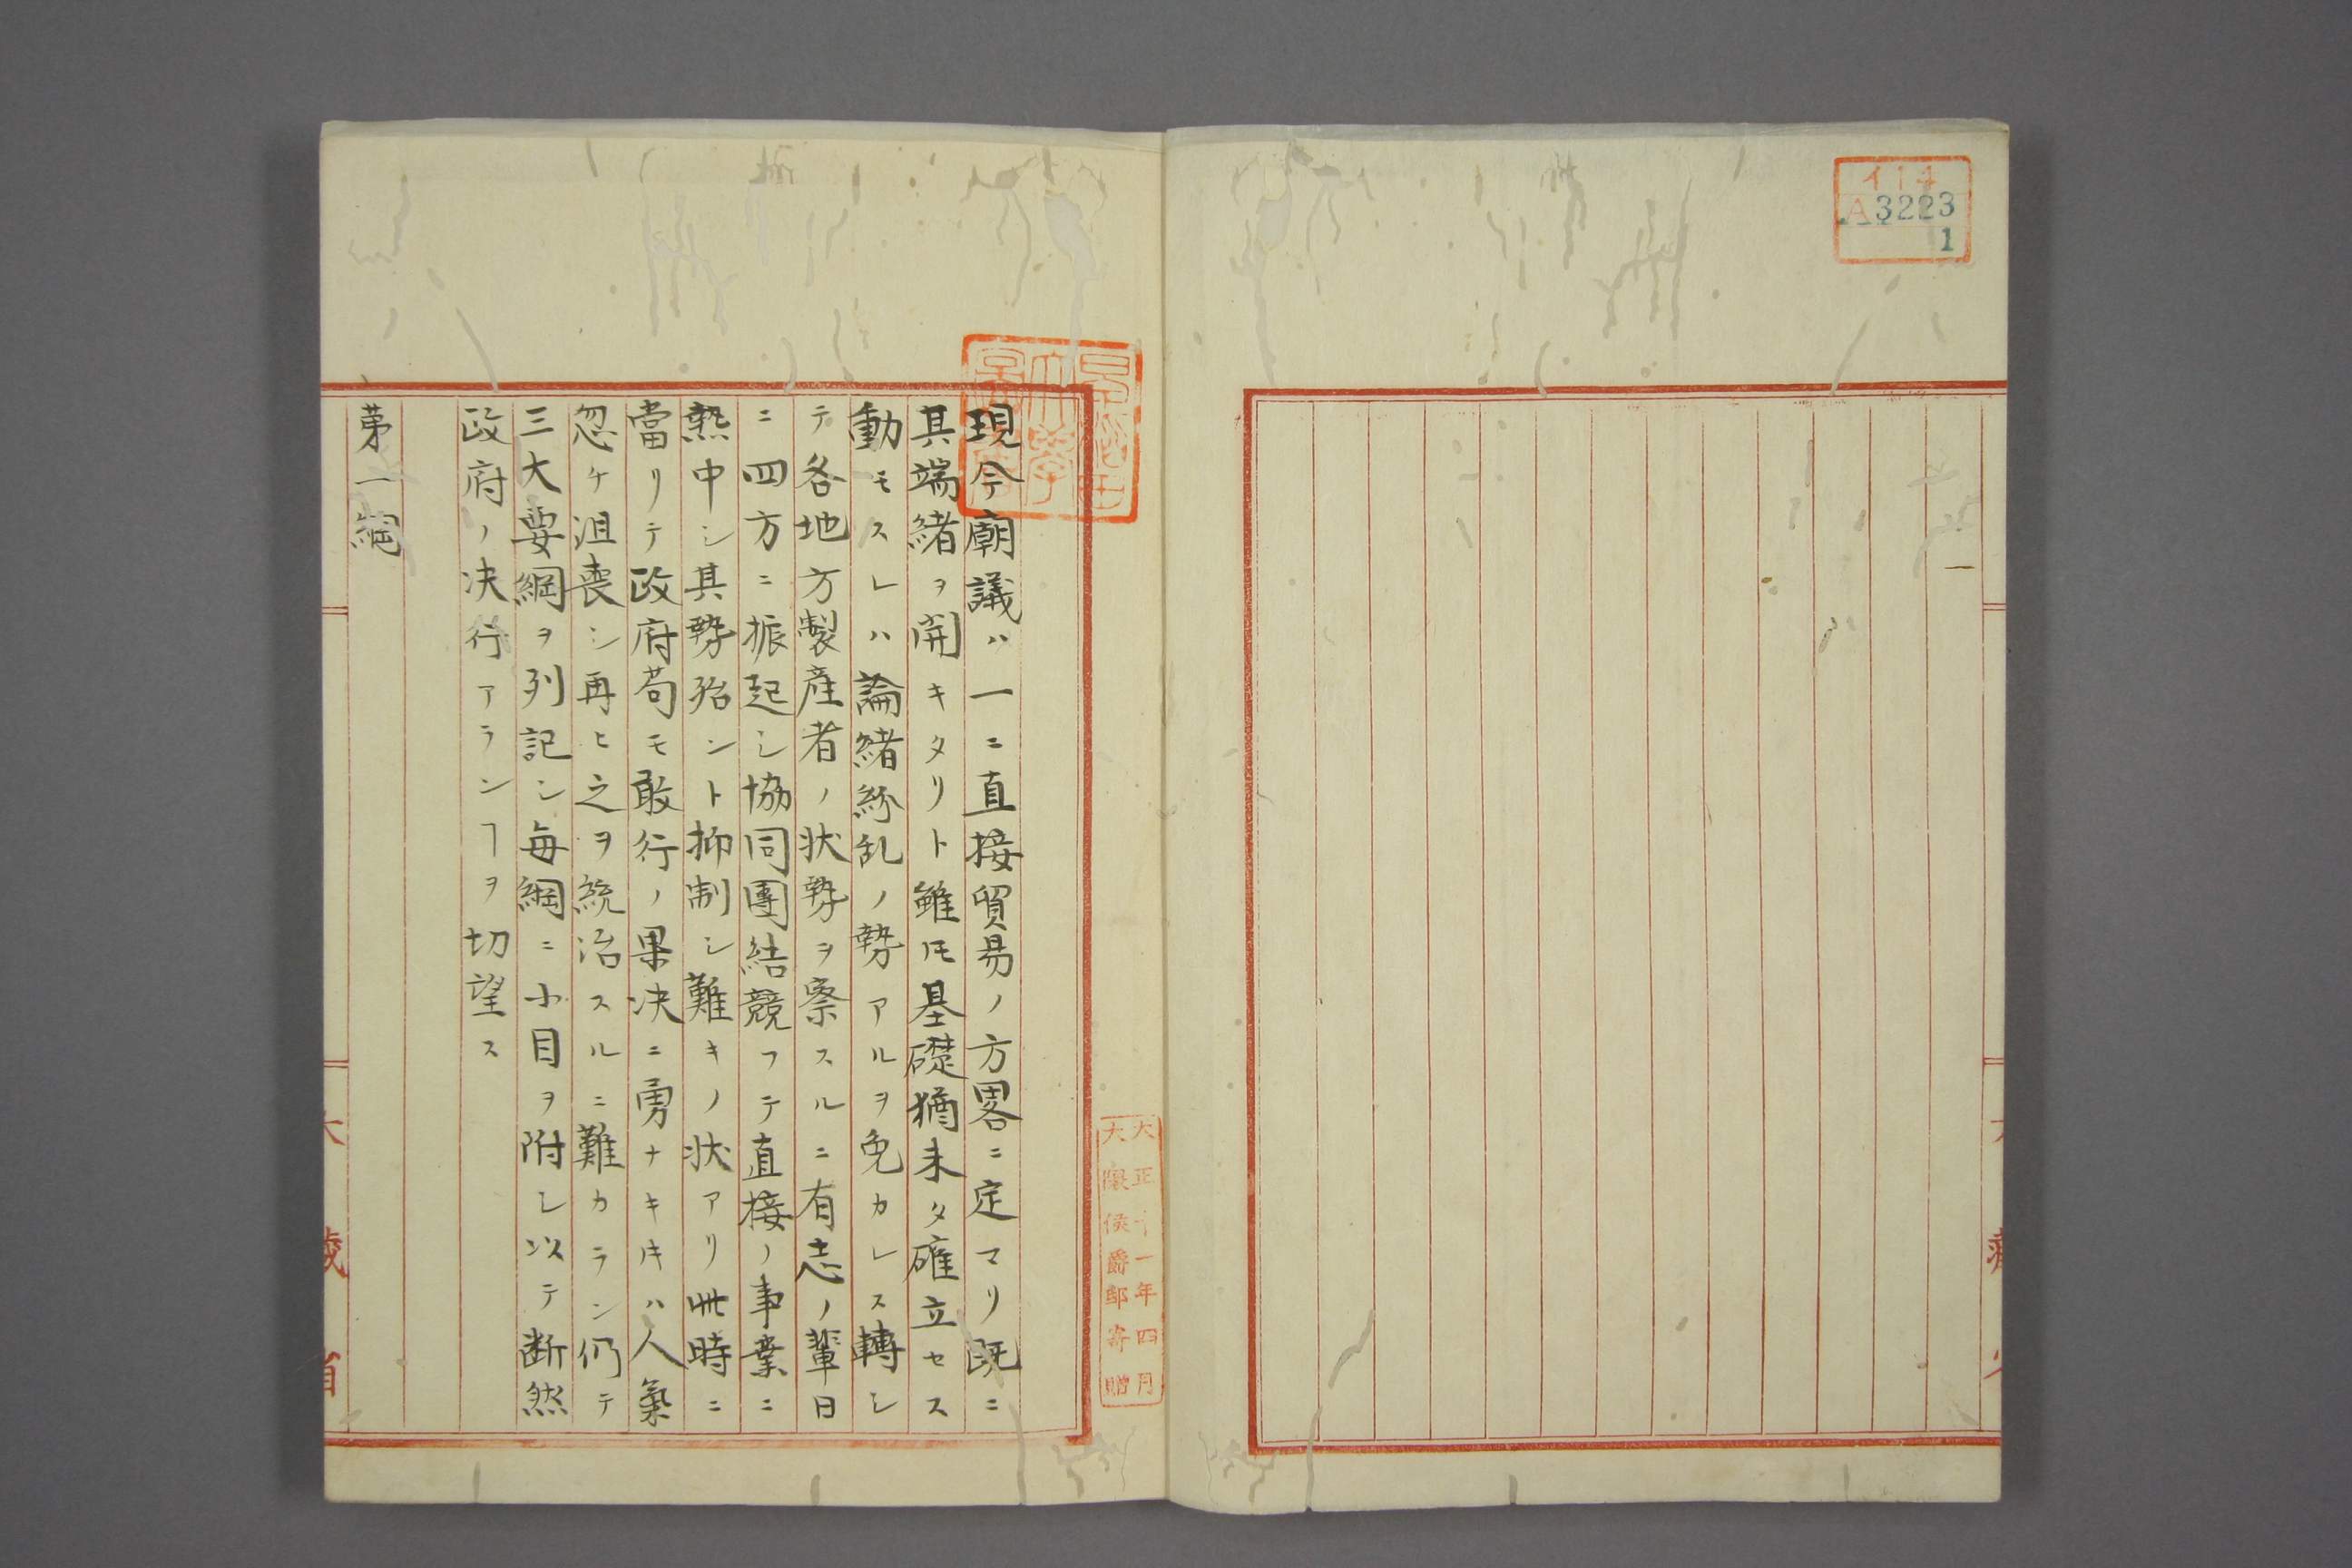 イ14
A3223
1
現今廟議ハ一ニ直接貿易ノ方畧ニ定マリ既ニ
其端緒ヲ開キタリト雖𪜈基礎猶未タ確立セス
動モスレハ論緒紛乱ノ勢アルヲ免カレス轉シ
テ各地方製産者ノ状勢ヲ察スルニ有志ノ輩日
ニ四方ニ振起シ協同團結競フテ直接ノ事業ニ
熱中シ其勢殆ント抑制シ難キノ状アリ此時ニ
當リテ政府苟モ敢行ノ果决ニ勇ナキ𪜈ハ人氣
忽ケ沮喪シ再ヒ之ヲ統治スルニ難カラン仍テ
三大要綱ヲ列記シ毎綱ニ小目ヲ附シ以テ断然
政府ノ决行アランヿヲ切望ス
第一綱
早稲田
大學
圖書
大正十一年四月
大隈侯爵邸寄贈
大藏省